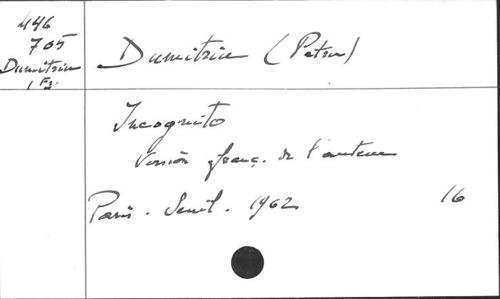 446
705
Dumitriu
1 F2.
Dumitriu (Petru)
Incognito
Version franç. de l'auteur
Paris. Seuil. 1962 16